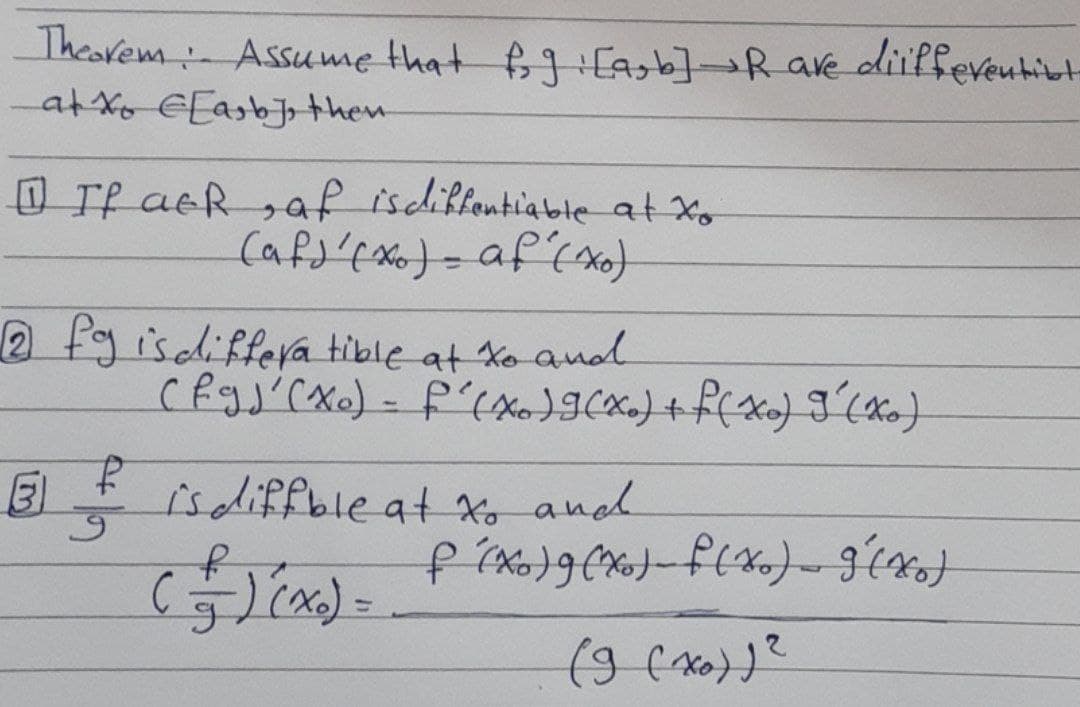 Theorem :- Assume that f, g : [a,b] → R are diifferentiabl
at x₀ ∈ [a,b], then
① If a∈R, af is diffentiable at x₀
(af)'(x₀) = af'(x₀)
② fg is differatible at x₀ and
(fg)'(x₀) = f'(x₀)g(x₀) + f(x₀) g'(x₀)
③ f/g is diffble at x₀ and
(f/g)'(x₀) = f'(x₀)g(x₀) - f(x₀) - g'(x₀)
(g(x₀))²